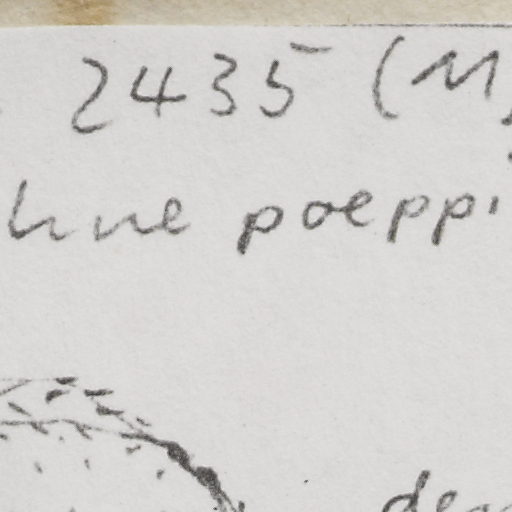 2435 (M
hne poeppi
de